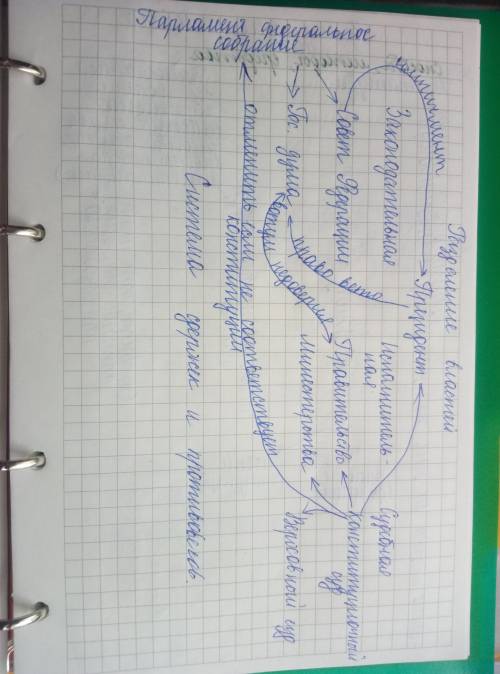 Разделение властей
Президент
Законодательная
Исполнитель-
ная
Судебная
импичмент
Совет Федерации
Правительство
конституционный
суд
право вето
Гос. дума
вотум недоверия
Министерства
Верховный суд
Парламент федеральное
собрание
отменить если не соответствует
конституции
Система сдержек и противовесов.